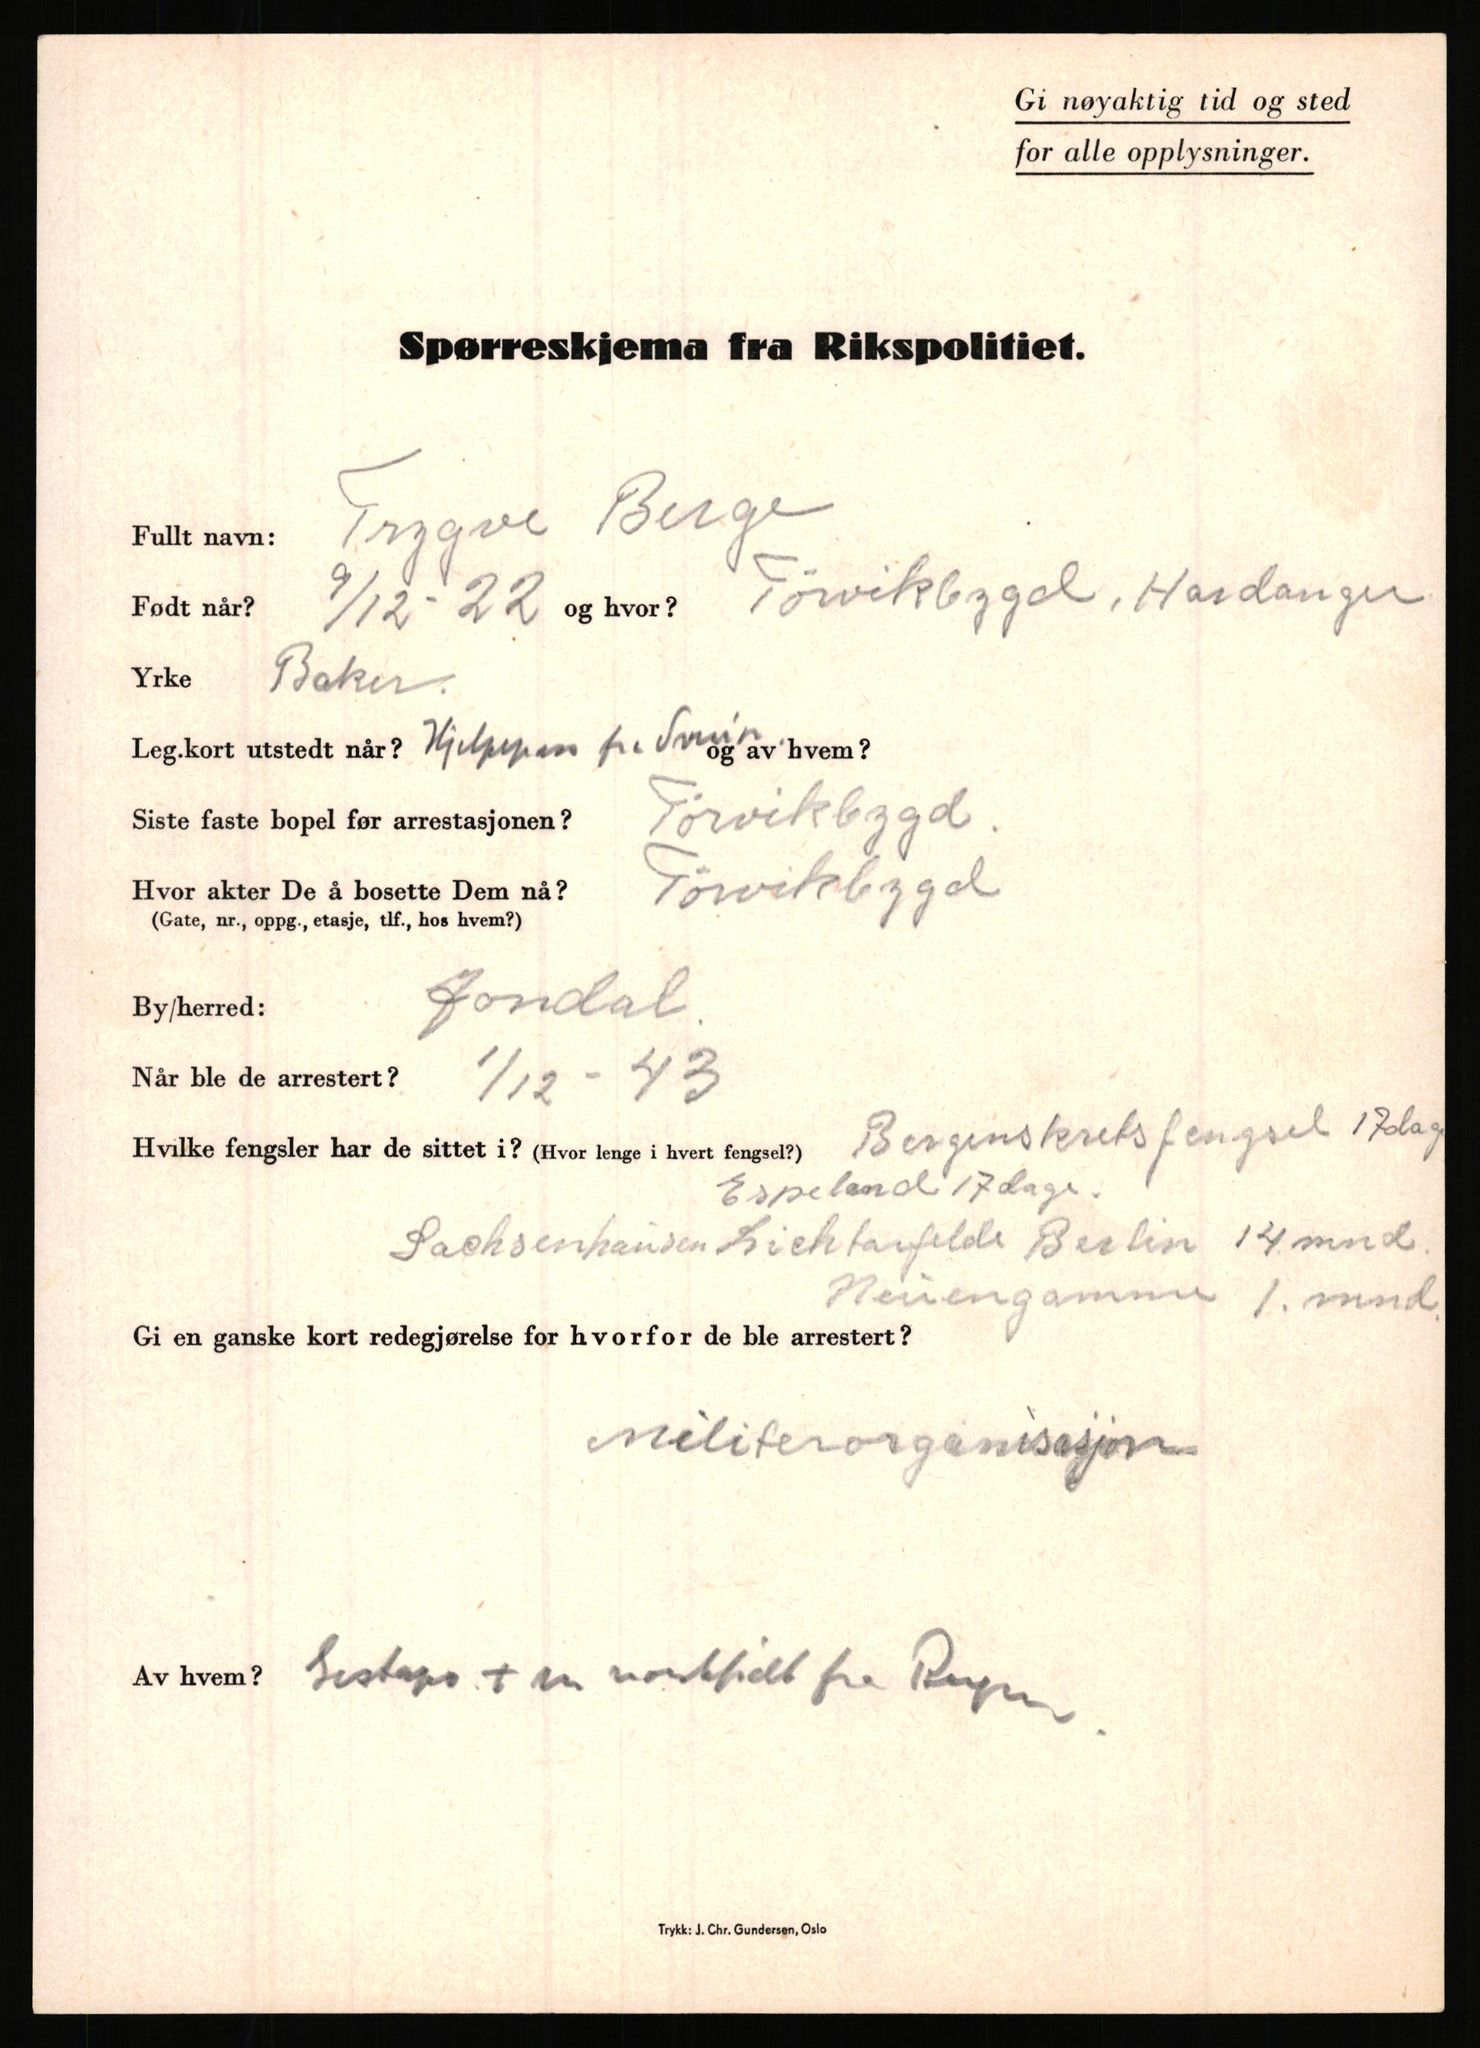 Gi nøyaktig tid og sted
for alle opplysninger.
Spørreskjema fra Rikspolitiet.
Fullt navn: Trygve Berge
Født når? 9/12-22 og hvor? Törvikbygd, Hardanger
Yrke Baker.
Leg.kort utstedt når? Hjelpepass fra og av hvem?
Siste faste bopel før arrestasjonen? Törvikbygd.
Hvor akter De å bosette Dem nå? Törvikbygd
(Gate, nr., oppg., etasje, tlf., hos hvem?)
By/herred: Jondal.
Når ble de arrestert? 1/12-43
Hvilke fengsler har de sittet i? (Hvor lenge i hvert fengsel?) Bergenskretsfengsel 17dage
Espeland 17dage.
Sachsenhausen Lichtarfelde Berlin 14 mnd.
Neuengamme 1. mnd.
Gi en ganske kort redegjørelse for hvorfor de ble arrestert?
Militerorganisasjon
Av hvem? Gestapo + en fra
Trykk: J. Chr. Gundersen, Oslo